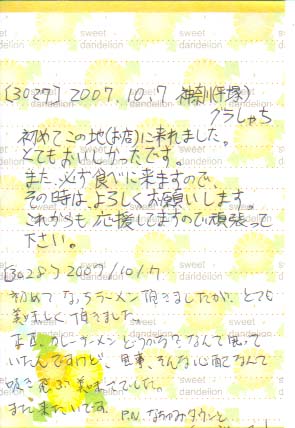 sweet dandelion
[3027] 2007.10.7 神奈川(平塚)
グラしゃち
初めてこの地(お店)に来れました。
とてもおいしかったです。
また、必ず食べに来ますので、
その時は、よろしくお願いします。
これからも応援してますので頑張って
下さい。
[3028] 2007/10/7
初めて なっちラーメン頂きましたが、とても
美味しく頂きました。
正直、カレーラーメンどうかな?なんて思って
いたんですけど、見事、そんな心配なんて
吹き飛ぶ美味さでした。
また来たいです。
P.N.